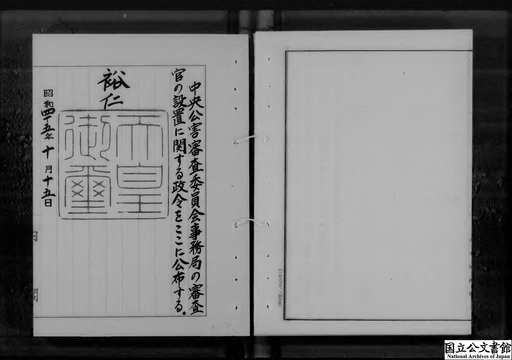 中央公害審査委員会事務局の審査
官の設置に関する政令をここに公布する。
裕仁
天皇
御璽
昭和四十五年十月十五日
内閣
国立公文書館
National Archives of Japan